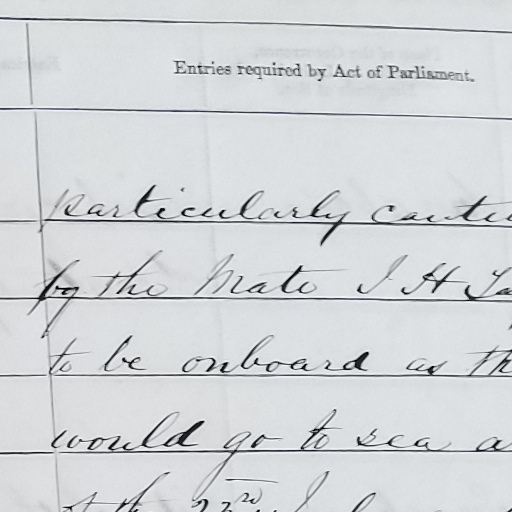 Entries required by Act of Parliament.
particularly
by the Mate J H
to be onboard as
would go to sea